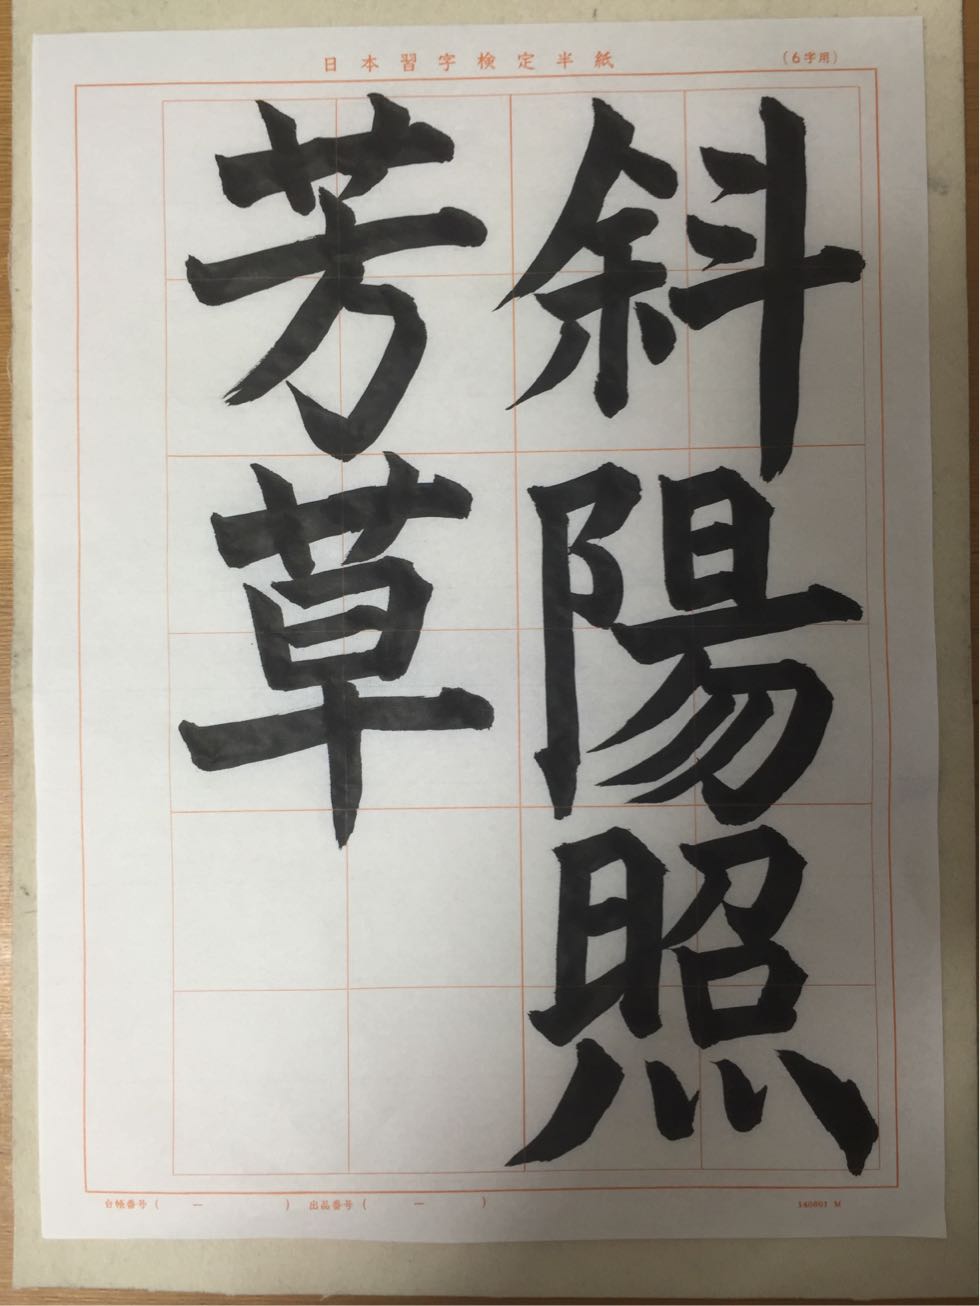 日本習字検定半紙
(6字用)
斜陽照
芳草
台帳番号( ー )
出品番号( ー )
140801 M